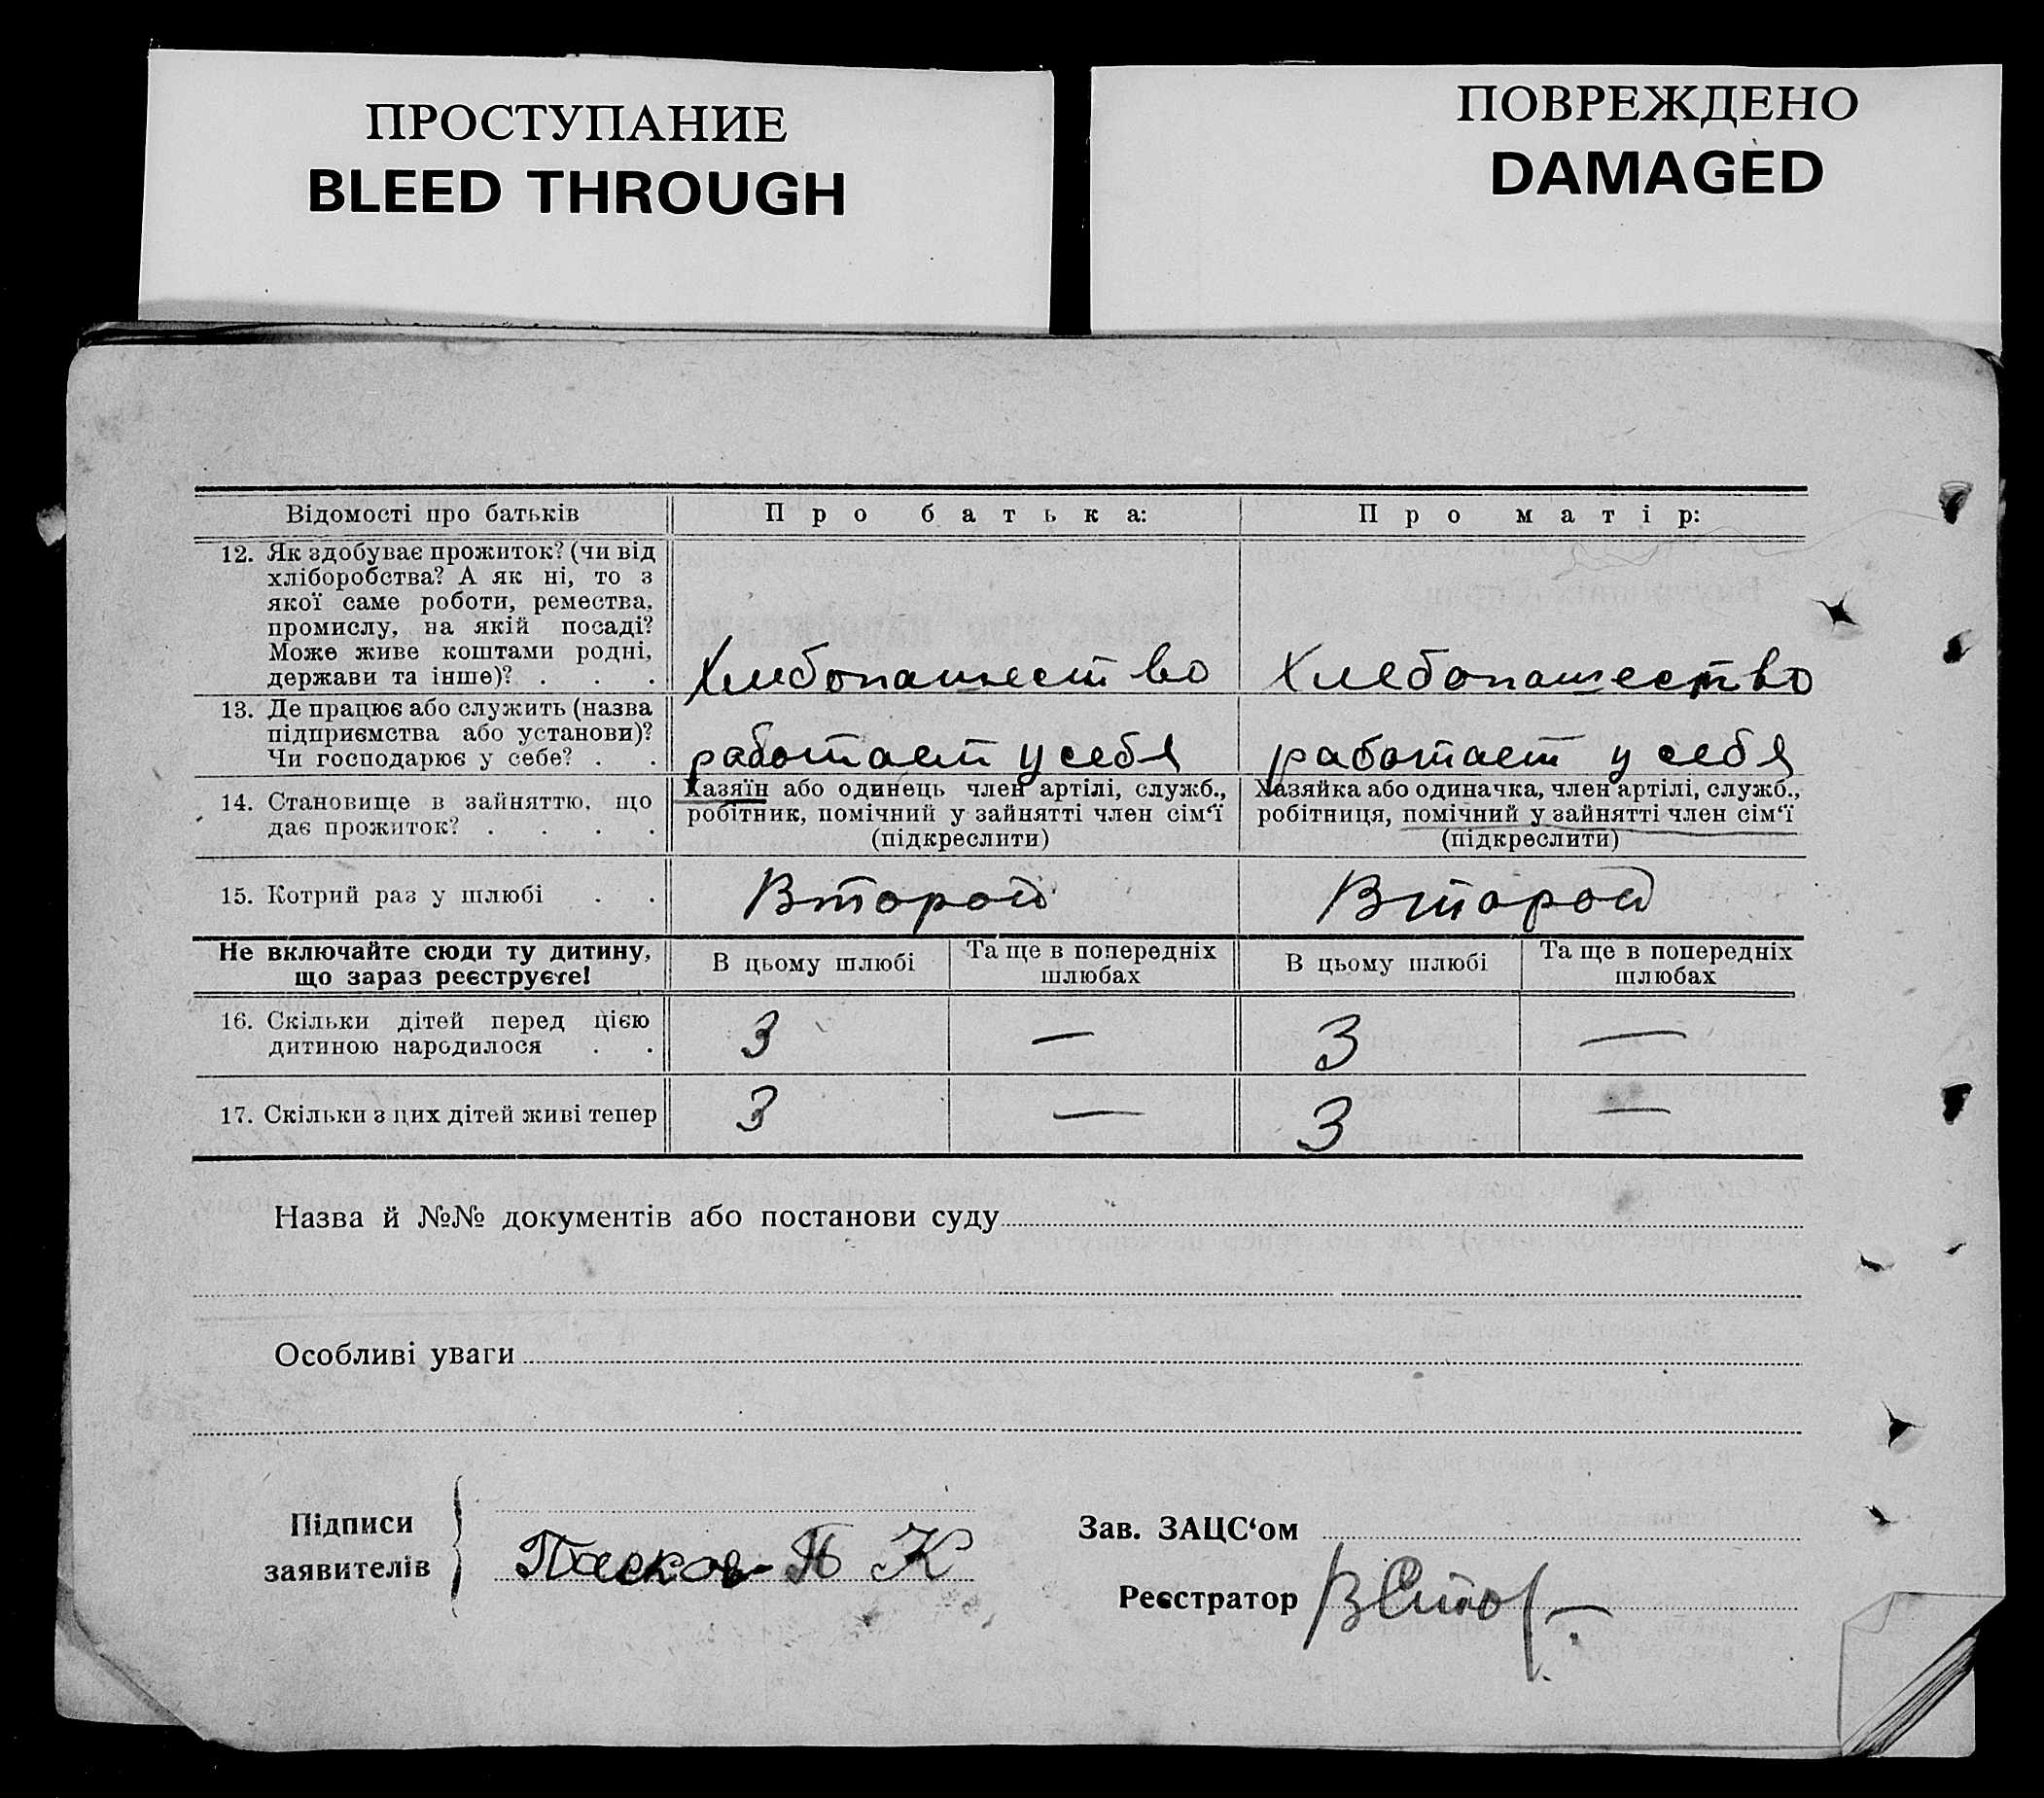 ПРОСТУПАНИЕ
BLEED THROUGH
ПОВРЕЖДЕНО
DAMAGED
Відомості про батьків
Про батька:
Про матір:
12. Як здобуває прожиток? (чи від
хліборобства? А як ні, то з
якої саме роботи, ремества,
промислу, на якій посаді?
Може живе коштами родні,
держави та інше)? . . .
Хлебопашество
Хлебопашество
13. Де працює або служить (назва
підприємства або установи)?
Чи господарює у себе? . .
работает у себя
работает у себя
14. Становище в зайняттю, що
дає прожиток? . . . .
Хазяїн або одинець член артілі, служб.,
робітник, помічний у зайнятті член сім‘ї
(підкреслити)
Хазяйка або одиначка, член артілі, служб.,
робітниця, помічний у зайнятті член сім‘ї
(підкреслити)
15. Котрий раз у шлюбі . .
Второй
Второй
Не включайте сюди ту дитину,
що зараз реєструєте!
В цьому шлюбі
Та ще в попередніх
шлюбах
В цьому шлюбі
Та ще в попередніх
шлюбах
16. Скільки дітей перед цією
дитиною народилося . .
3
—
3
—
17. Скільки з цих дітей живі тепер
3
—
3
—
Назва й №№ документів або постанови суду
Особливі уваги
Підписи
заявителів
П К
Зав. ЗАЦС‘ом
Реєстратор